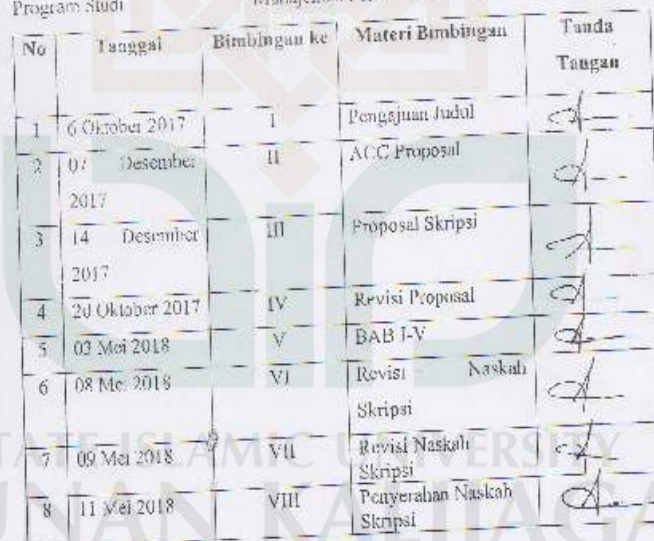 Program Studi
No Tanggal Bimbingan ke Materi Bimbingan Tanda
Tangan
1 6 Oktober 2017 I Pengajuan Judul
2 07 Desember II ACC Proposal
2017
3 14 Desember III Proposal Skripsi
2017
4 20 Oktober 2017 IV Revisi Proposal
5 03 Mei 2018 V BAB I-V
6 08 Mei 2018 VI Revisi Naskah
Skripsi
7 09 Mei 2018 VII Revisi Naskah
Skripsi
8 11 Mei 2018 VIII Penyerahan Naskah
Skripsi
STATE ISLAMIC UNIVERSITY
SUNAN KALIJAGA